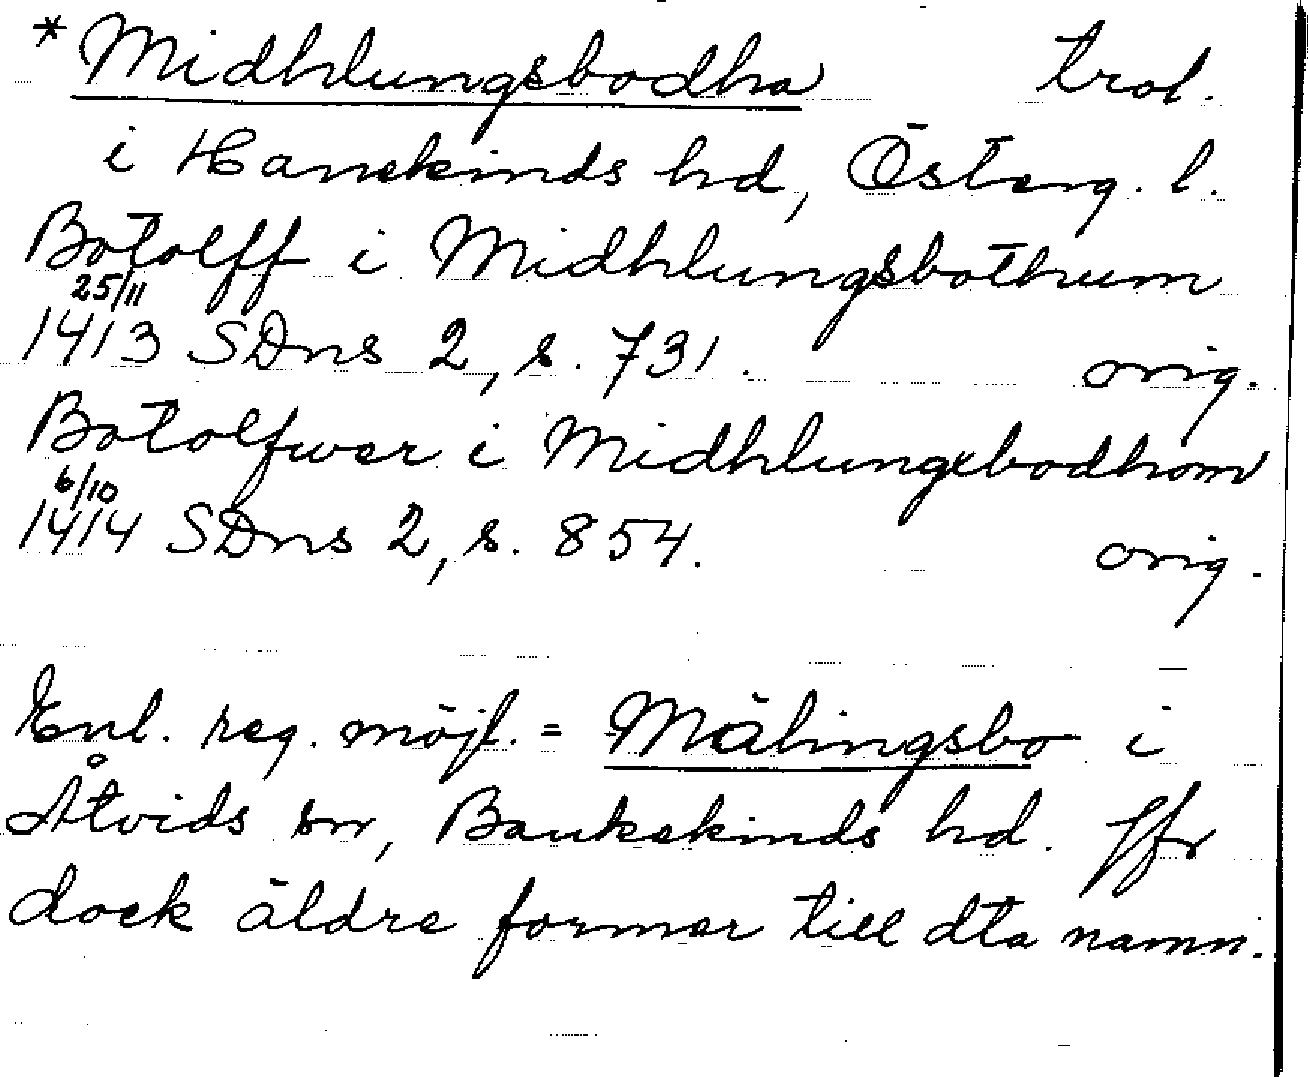 *Midhlungsbodha trol.
i Hanekinds hd, Österg. l.
Botolff i Midhlungsbothum
25/11
1413 SDns 2, s. 731. orig.
Botolfwer i Midhlungxbodhom
6/10
1414 SDns 2, s. 854. orig.
Enl. reg. möjl. = Mälingsbo i
Åtvids sn, Bankekinds hd. Jfr
dock äldre former till dta namn.